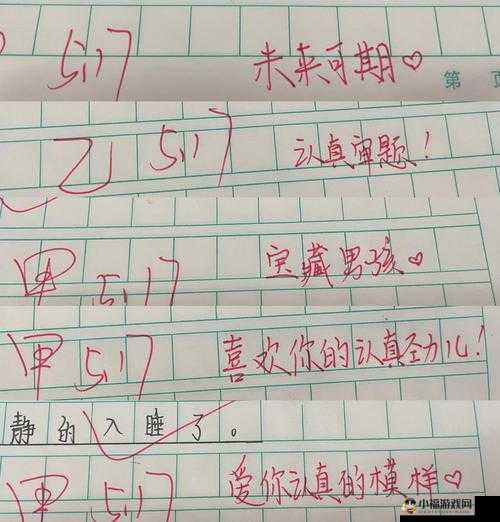 5.17 未来可期♡
第 页
乙 5.17 认真审题！
甲 5.17 宝藏男孩♡
甲 5.17 喜欢你的认真劲儿！
静的入睡了。
甲 5.17 爱你认真的模样♡
小福游戏网